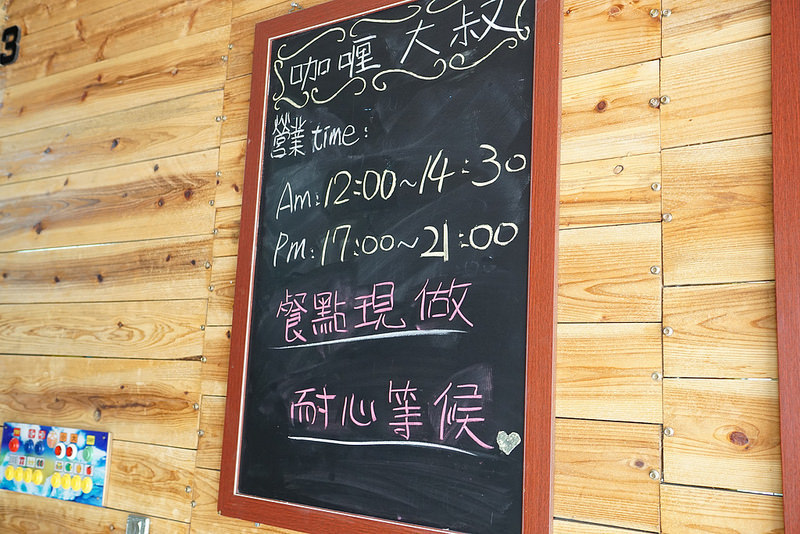 咖喱大叔
營業time:
Am:12:00~14:30
Pm:17:00~21:00
餐點現做
耐心等候
3